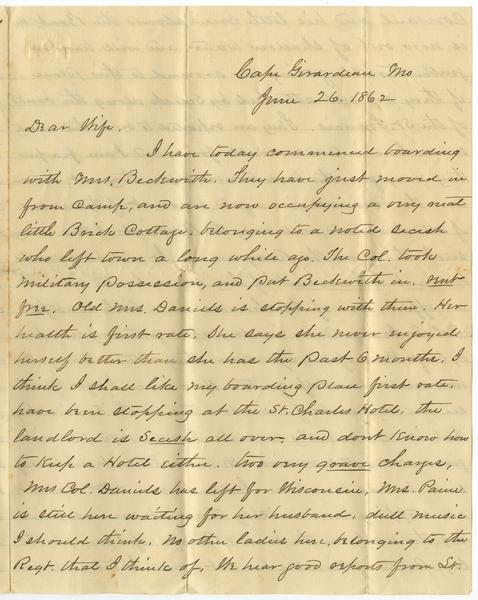 Cape Girardeau Mo
June 26. 1862
Dear Wife.
I have today commenced boarding
with Mrs. Beckwith. They have just moved in
from Camp, and are now occupying a very neat
little Brick Cottage. belonging to a noted secesh
who left town a long while ago. The Col. took
military Possession, and Put Beckwith in. rent
free. Old Mrs. Daniels is stopping with them. Her
health is first rate. She says she never enjoyed
herself better than she has the Past 6 months. I
think I shall like my boarding Place first rate.
have been stopping at the St. Charles Hotel. the
landlord is Secesh all over. and dont Know how
to Keep a Hotel either. two very grave charges,
Mrs Col. Daniels has left for Wisconsin, Mrs. Paine
is still here waiting for her husband. dull music
I should think. No other ladies here belonging to the
Regt. that I think of. We hear good reports from Lt.